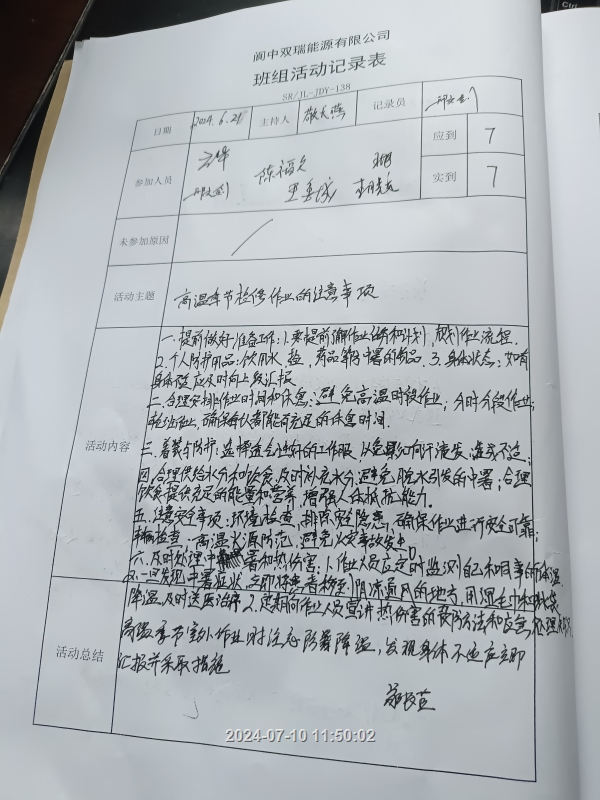 阆中双瑞能源有限公司
班组活动记录表
SR/JL-JDY-138
日期 2024.6.21 主持人 记录员
参加人员 陈福久 应到 7
实到 7
未参加原因
活动主题 高温季节检修作业的注意事项
活动内容
一.提前做好准备工作:1.要提前了解作业任务和计划,规划作业流程.
2.个人防护用品:饮用水、药品等防中暑的药品.3.身体状态:如有
身体 应及时向上级汇报
二.合理安排作业时间和休息:避免高温时段作业,分时分段作业;
轮班作业,确保每人都能有充足的休息时间.
三.着装与防护:选择透气性好的工作服,以免影响汗液蒸发,造成不适;
四.合理供给水分和饮食,及时补充水分,避免脱水引发的中暑;合理
饮食提供充足的能量和营养,增强人体抵抗能力.
五.注意安全事项:环境检查,排除安全隐患,确保作业进行安全可靠;
检查:高温火源防范,避免火灾事故发生
六.及时处理中暑和热伤害:1.作业人员应定时监测自己和同事的体温
一旦发现中暑症状,立即将患者移至阴凉通风的地方,用湿毛巾和冰袋
降温,及时送医治疗 2.定期向作业人员宣讲热伤害的预防方法和应急处理
活动总结
高温季节室外作业时注意防暑降温,发现身体不适应立即
汇报并采取措施
2024-07-10 11:50:02